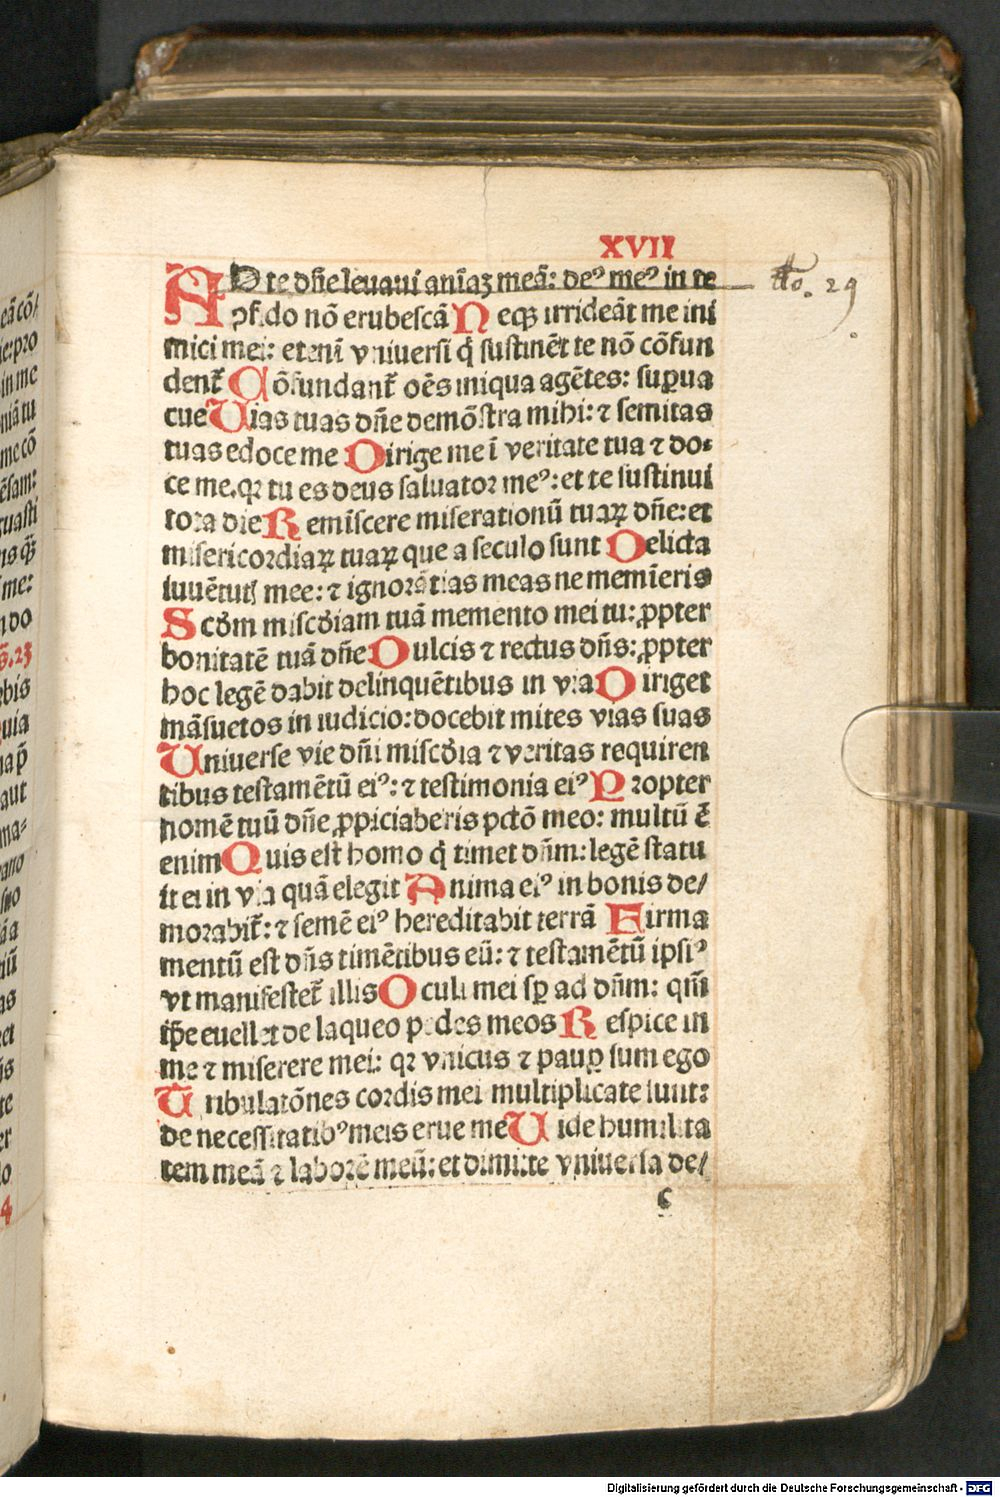 XVII
AD te dñe leuaui aniaʒ meā: deꝰ meꝰ in te
ꝯfido nō erubescā Neqꝫ irrideāt me ini
mici mei: etenī vniuersi q̄ sustinēt te nō cōfun
dent̄ Cōfundant̄ oēs iniqua agētes: supua
cue Uias tuas dñe demōstra mihi: ⁊ semitas
tuas edoce me Dirige me ī veritate tua ⁊ do-
ce me. qꝛ tu es deus saluator meꝰ: et te sustinui
tota die Remīscere miserationū tuaꝝ dñe: et
misericordiaꝝ tuaꝝ que a seculo sunt Delicta
iuuētut; mee: ⁊ ignorātias meas ne memīeris
Scd̄m miscd̄iam tuā memento mei tu: ꝓpter
bonitatē tuā dñe Dulcis ⁊ rectus dñs: ꝓpter
hoc legē dabit delinquētibus in via Diriget
māsuetos in iudicio: docebit mites vias suas
Uniuerse vie dñi miscd̄ia ⁊ veritas requiren
tibus testamētū eiꝰ: ⁊ testimonia eiꝰ Propter
nomē tuū dñe ꝓpiciaberis pctō meo: multū ē
enim Quis est homo q̄ timet dñm: legē statu
it ei in via quā elegit Anima eiꝰ in bonis de/
morabit̄: ⁊ semē eiꝰ hereditabit terrā Firma
mentū est dñs timētibus eū: ⁊ testamētū ipsiꝰ
vt manifestet̄ illis Oculi mei sp̄ ad dñm: qm̄
ip̄e euellet de laqueo pedes meos Respice in
me ⁊ miserere mei: qꝛ vnicus ⁊ paup̄ sum ego
Tribulatōnes cordis mei multiplicate sunt:
de necessitatibꝰ meis erue me Uide humilita
tem meā ⁊ laborē meū: et dimitte vniuersa de/
c
29
Digitalisierung gefördert durch die Deutsche Forschungsgemeinschaft - DFG